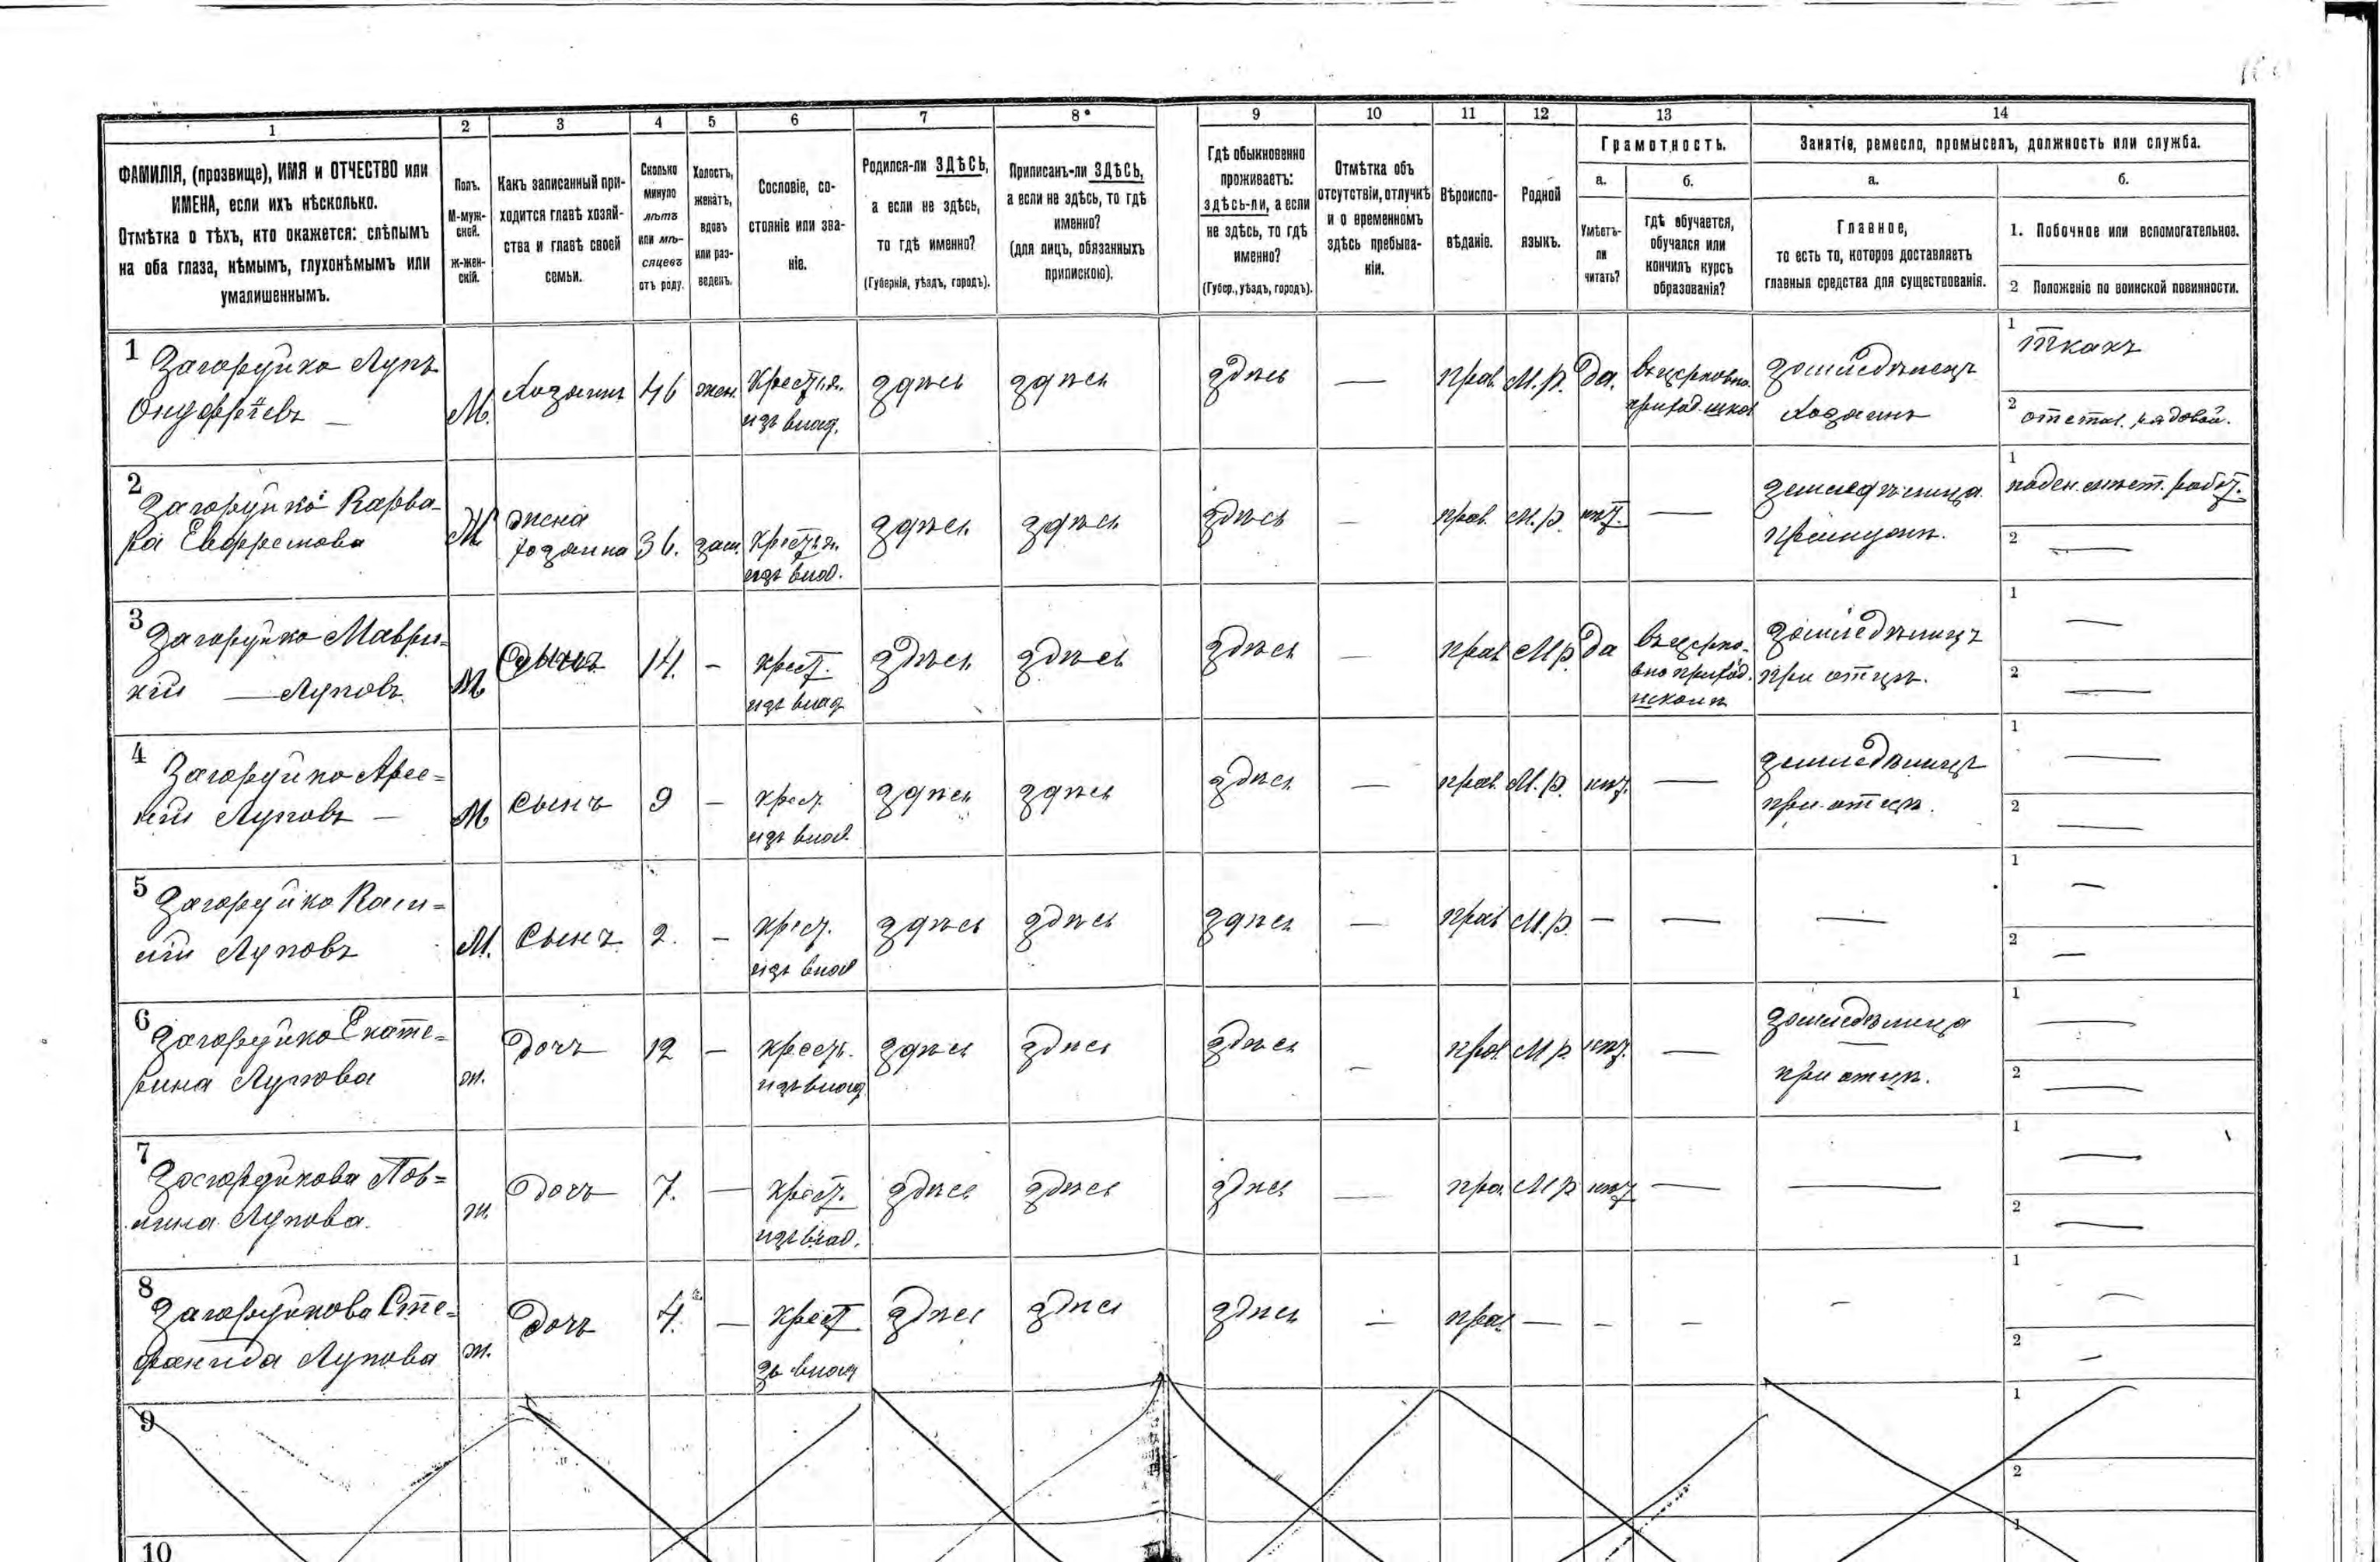 1 2 3 4 5 6 7 8 9 10 11 12 13 14
ФАМИЛІЯ, (прозвище), ИМЯ и ОТЧЕСТВО или
ИМЕНА, если ихъ нѣсколько.
Отмѣтка о тѣхъ, кто окажется: слѣпымъ
на оба глаза, нѣмымъ, глухонѣмымъ или
умалишеннымъ.
Полъ.
М-муж-
ской.
ж-жен-
скій.
Какъ записанный при-
ходится главѣ хозяй-
ства и главѣ своей
семьи.
Сколько
минуло
лѣтъ
или мѣ-
сяцевъ
отъ роду.
Холостъ,
женатъ,
вдовъ
или раз-
веденъ.
Сословіе, со-
стояніе или зва-
ніе.
Родился-ли ЗДѢСЬ,
а если не здѣсь,
то гдѣ именно?
(Губернія, уѣздъ, городъ).
Приписанъ-ли ЗДѢСЬ,
а если не здѣсь, то гдѣ
именно?
(для лицъ, обязанныхъ
припискою).
Гдѣ обыкновенно
проживаетъ:
здѣсь-ли, а если
не здѣсь, то гдѣ
именно?
(Губер., уѣздъ, городъ).
Отмѣтка объ
отсутствіи, отлучкѣ
и о временномъ
здѣсь пребыва-
ніи.
Вѣроиспо-
вѣданіе.
Родной
языкъ.
Грамотность.
а.
Умѣетъ-
ли
читать?
б.
Гдѣ обучается,
обучался или
кончилъ курсъ
образованія?
Занятіе, ремесло, промыселъ, должность или служба.
а.
Главное,
то есть то, которое доставляетъ
главныя средства для существованія.
б.
1. Побочное или вспомогательное.
2 Положеніе по воинской повинности.
1 Загоруйко Лупъ
Онуфріевъ —
М.
Хозяинъ
46
жен.
Крестья.
изъ влад.
здѣсь
здѣсь
здѣсь
—
прав.
М.р.
Да.
въ церковно.
приход. школ
земледѣлецъ
хозяинъ
1 ткачъ
2 отстав. рядовой.
2 Загоруйко Варва-
ра
Ж
жена
хозяина
36.
зам.
Крестья.
изъ влад.
здѣсь
здѣсь
здѣсь
—
прав.
М.р.
нѣт.
—
земледѣлица
при мужѣ.
1 поден.
2 —
3 Загоруйко Маври-
кій — Луповъ
М
Сынъ
14.
—
крест.
изъ влад
здѣсь
здѣсь
здѣсь
—
прав
М.р.
да
въ церко-
вно приход.
школѣ
земледѣлецъ
при отцѣ.
1 —
2 —
4 Загоруйко Арсе=
ній Луповъ —
М
сынъ
9
—
крест.
изъ влад.
здѣсь
здѣсь
здѣсь
—
прав.
М.р.
нѣт.
—
земледѣлецъ
при отцѣ.
1 —
2 —
5 Загоруйко
Луповъ
М.
Сынъ
2.
—
крест.
изъ влад
здѣсь
здѣсь
здѣсь
—
прав
М.р.
—
—
—
1 —
2 —
6 Загоруйко Екате=
рина Лупова
ж.
Дочь
12
—
крест.
изъ влад
здѣсь
здѣсь
здѣсь
—
прав.
М р
нѣт.
—
земледѣлица
при отцѣ.
1 —
2 —
7 Загоруйкова Пов=
лина Лупова.
ж
Дочь
7.
—
крест.
изъ влад.
здѣсь
здѣсь
здѣсь
—
пра.
М р
нѣт
—
—
1 —
2 —
8 Загоруйкова Сте=
фанида Лупова
ж.
Дочь
4.
—
крест
зъ влад
здѣсь
здѣсь
здѣсь
—
прав
—
—
—
—
1 —
2 —
9
1
2
10
1